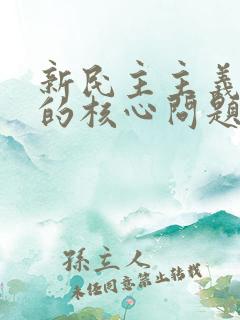 新民主主義
的核心問題
孫主人
未经同意禁止转载